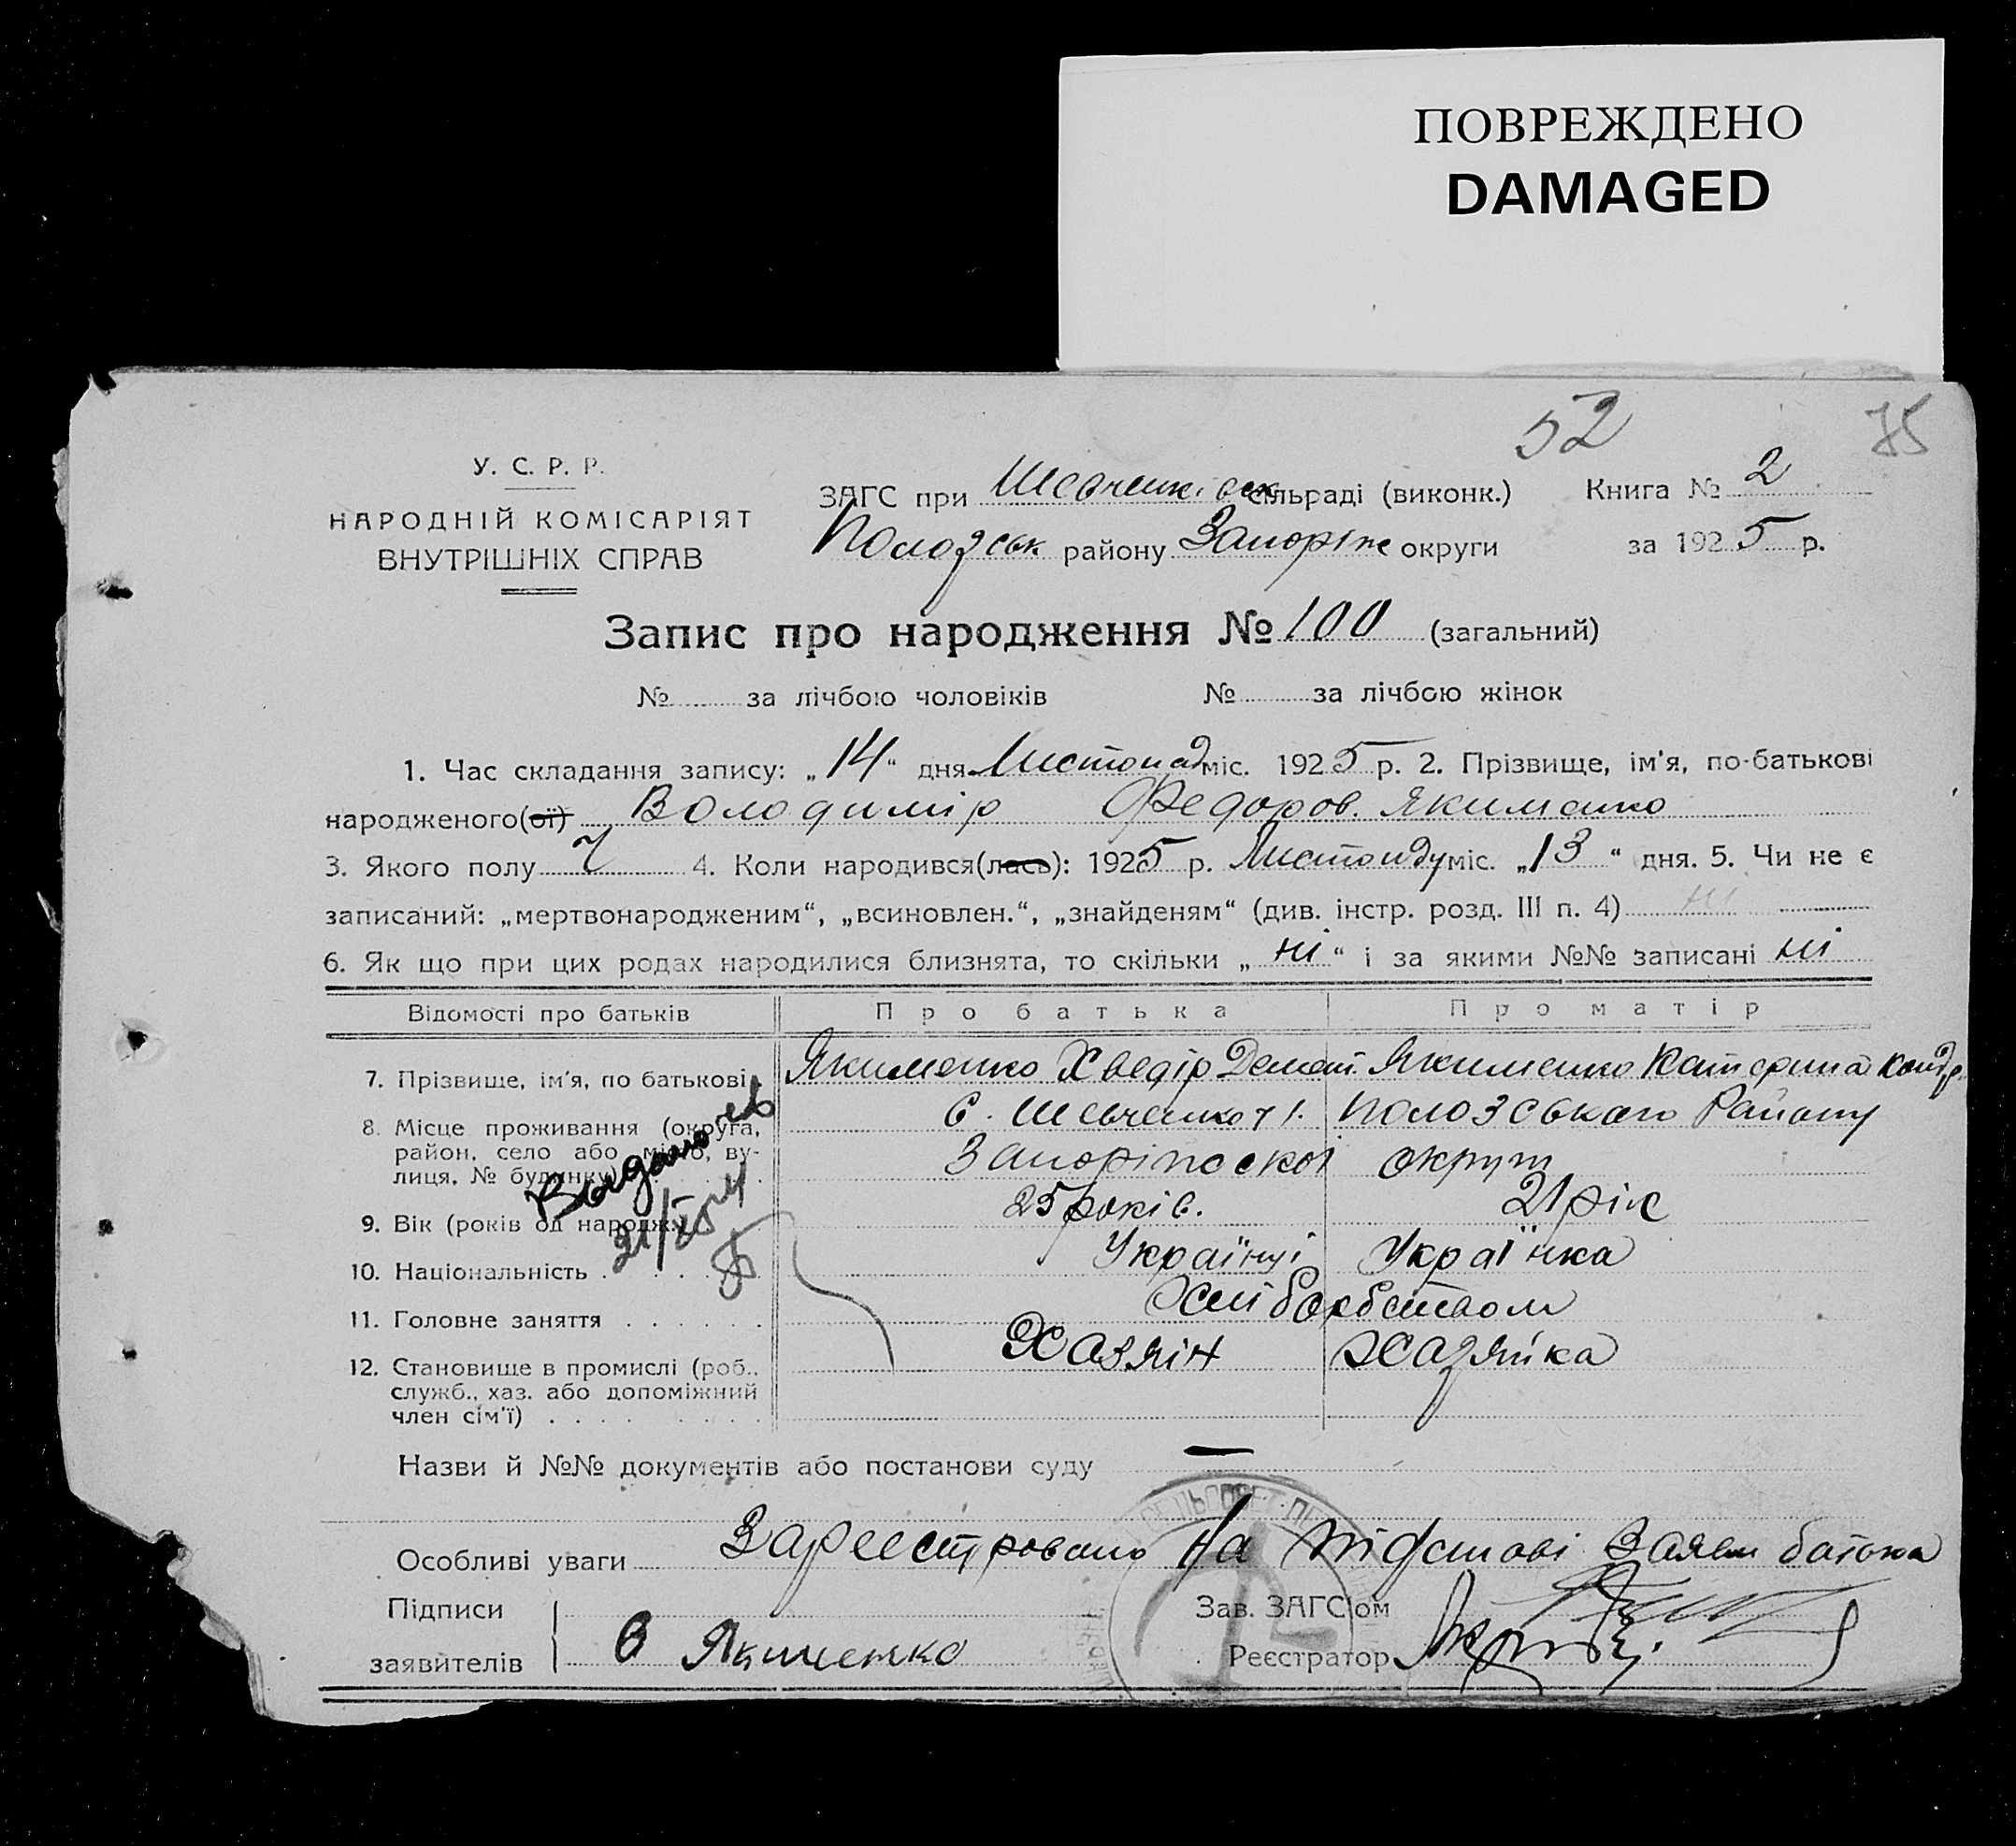 ПОВРЕЖДЕНО
DAMAGED
52 75
У. С. Р. Р.
НАРОДНІЙ КОМІСАРІЯТ
ВНУТРІШНІХ СПРАВ
ЗАГС при Шевченківськ сільраді (виконк.) Книга № 2
Пологськ району Запоріж округи за 1925 р.
Запис про народження № 100 (загальний)
№ за лічбою чоловіків № за лічбою жінок
1. Час складання запису: „14“ дня Листопад міс. 1925 р. 2. Прізвище, ім'я, по-батькові
народженого(ої) Володимір Федоров. Якименко
3. Якого полу Ч 4. Коли народився(лась): 1925 р. Листопаду міс. „13“ дня. 5. Чи не є
записаний: „мертвонародженим“, „всиновлен.“, „знайденям“ (див. інстр. розд. III п. 4) ні
6. Як що при цих родах народилися близнята, то скільки „ні“ і за якими №№ записані ні
Відомості про батьків Про батька Про матір
7. Прізвище, ім'я, по батькові Якименко Хведір Якименко Катерина Конд.
8. Місце проживання (округа, район, село або місто, вулиця, № будинку) с. Шевченко Пологського Району
Запоріжської округи
9. Вік (років од народж.) 25 років. 21 рік
10. Національність Українці Українка
11. Головне заняття Хліборобством
12. Становище в промислі (роб., Хазяїн Хазяйка
служб., хаз. або допоміжний
член сім'ї)
Назви й №№ документів або постанови суду —
Особливі уваги Зареєстровано на підставі заяви батька
Підписи Зав. ЗАГС'ом
заявителів Якименко Реєстратор